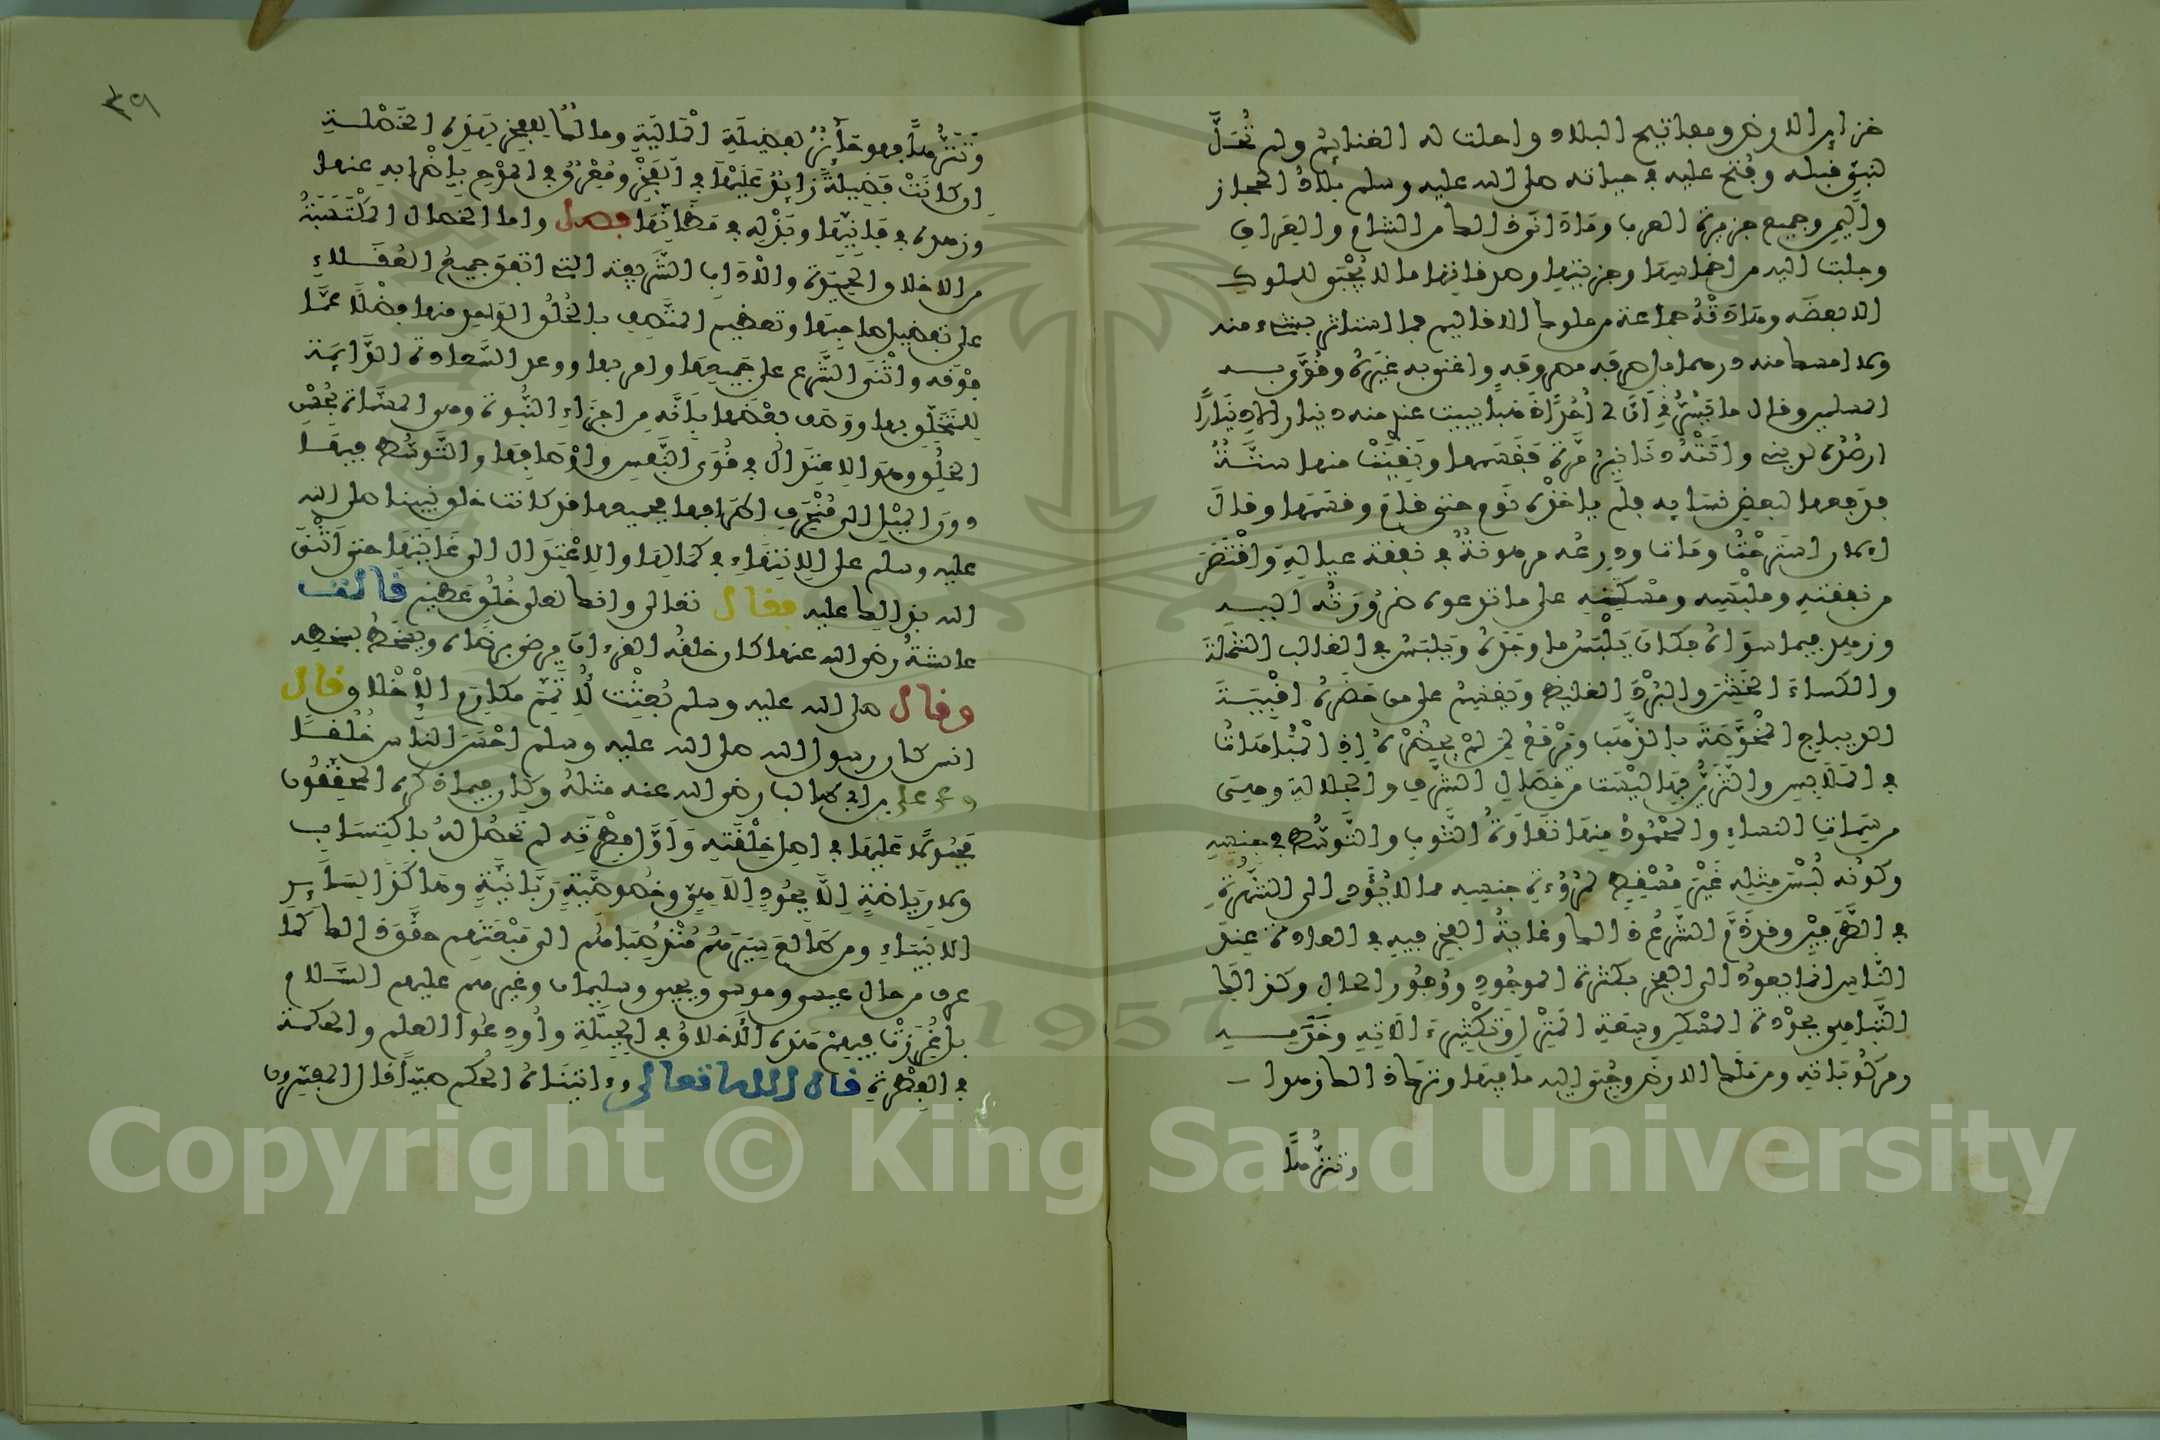 خزاين الارض ومفاتيح البلاد واحلت له الغنايم ولم تُحَلَّ
لنبيّ قبله وفُتح عليه في حياته صلى الله عليه وسلم بلادُ الحجاز
واليمن وجميع جزيرة العرب وما دانى ذلك من الشام والعراق
وجلبت اليه من اخماسها وجزيتها وصدقاتها ما لا يُجْبَى للملوك
الا بعضه وهادته جماعة من ملوك الاقاليم فما استاثر بشيء منه
ولا امسك منه درهما بل صرفه مصارفه واغنى به غيره وقوّى به
المسلمين وقال ما يسُرُّني انّ لي اُحُدًا ذهبًا يبيت عندي منه دينار الا دينارًا
ارصُدُه لديني واتَتْهُ دنانير مرّة فقسمها وبقيت منها ستّةٌ
فدفعها لبعض نسايه فلم ياخذه نوم حتى قام وقسمها وقال
الان استرحت ومات ودرعُه مرهونةٌ في نفقة عياله واقتصر
من نفقته وملبسه ومسكنه على ما تدعوه ضرورته اليه
وزهد فيما سواه فكان يلبس ما وجده ويلبس في الغالب الشملة
والكساء الخشن والبرد الغليظ ويقسم على من حضره اقبية
الديباج المخوّصة بالذهب ويرفع لمن لم يحضره اذ المباهاة
في الملابس والتزيّن بها ليست من خصال الشرف والجلالة وهي
من سمات النساء والمحمود منها نقاوة الثوب والتوسّط في جنسه
وكونه لُبْسَ مثله غير مسقط لمروءة جنسه مما لا يُؤدّي الى الشهرة
في الطرفين وقد ذمّ الشرع ذلك وغاية الفخر فيه في العادة عند
الناس انما يعود الى الفخر بكثرة الموجود ووفور الحال وكذلك
التباهي بجودة المسكن وسعة المنزل وتكثير الاته وخدمه
ومركوباته ومن ملك الارض وجُبي اليه ما فيها وترك ذلك زهدا
وتنزُّهًا
٣٩
وتنزُّهًا فهو حائز لفضيلة المالية ومالك للفخر بهذه الخصلة
ان كانت فضيلةً زائد عليها في الفخر ومعرق في المدح باضرابه عنها
وزهده في فانيها وبذله في مظانّها فصل واما الخصال المكتسبة
من الاخلاق الحميدة والاداب الشريفة التي اتفق جميع العقلاء
على تفضيل صاحبها وتعظيم المتّصف بالخُلُق الواحد منها فضلا عمّا
فوقه واثنى الشرع على جميعها وامر بها ووعد السعادة الدايمة
للمتخلّق بها ووصف بعضها بانّه من اجزاء النبُوة وهي المسمّاة بحُسْن
الخلُق وهو الاعتدال في قوى النفس واوصافها والتوسّط فيها
دون الميل الى منحرف اطرافها فجميعها قد كانت خلق نبينا صلى الله
عليه وسلم على الانتهاء في كمالها والاعتدال الى غايتها حتى اثنى
الله بذلك عليه فقال تعالى وانك لعلى خُلُق عظيم قالت
عائشةُ رضي الله عنها كان خلقُه القرءان يرضى برضاه ويسخط بسخطه
وقال صلى الله عليه وسلم بُعثت لأُتمّم مكارم الاخلاق وقال
انس كان رسول الله صلى الله عليه وسلم احسن الناس خُلُقًا
وعن علي بن ابي طالب رضي الله عنه مثله وكان فيما ذكره المحققون
مجبولًا عليها في اصل خلقته واوّل فطرته لم تحصل له باكتساب
ولا رياضة الّا بجود الاهي وخصوصية ربّانيّة وهكذا لساير
الانبياء ومن طالع سيرهم منذ صباهم الى مبعثهم حقّق ذلك كما
عرف من حال عيسى وموسى ويحيى وسليمان وغيرهم عليهم السلام
بل غُرزت فيهم هذه الاخلاق في الجبلّة واُودعُوا العلم والحكمة
في الفطرة قال الله تعالى وءاتيناه الحكم صبيّا قال المفسّرون